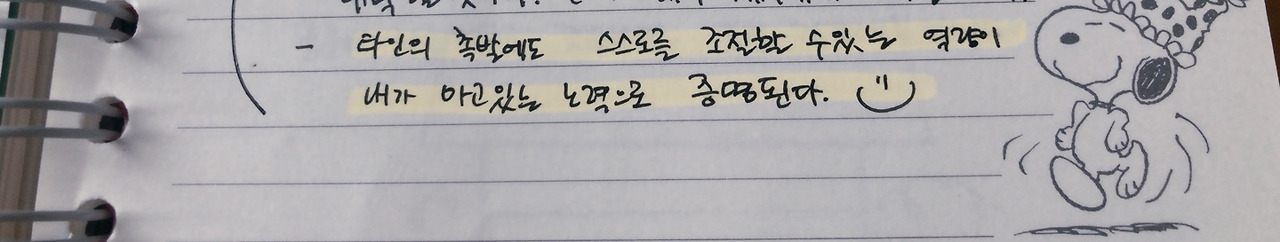 - 타인의 촉발에도 스스로를 조절할 수있는 역량이
내가 아고있는 노력으로 증명된다.